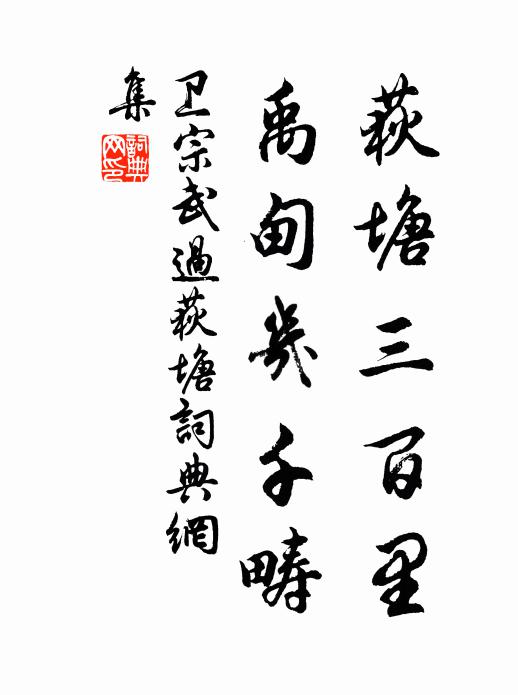 荻塘三百里
禹甸幾千疇
卫宗武過荻塘詞典網
集
詞典网印